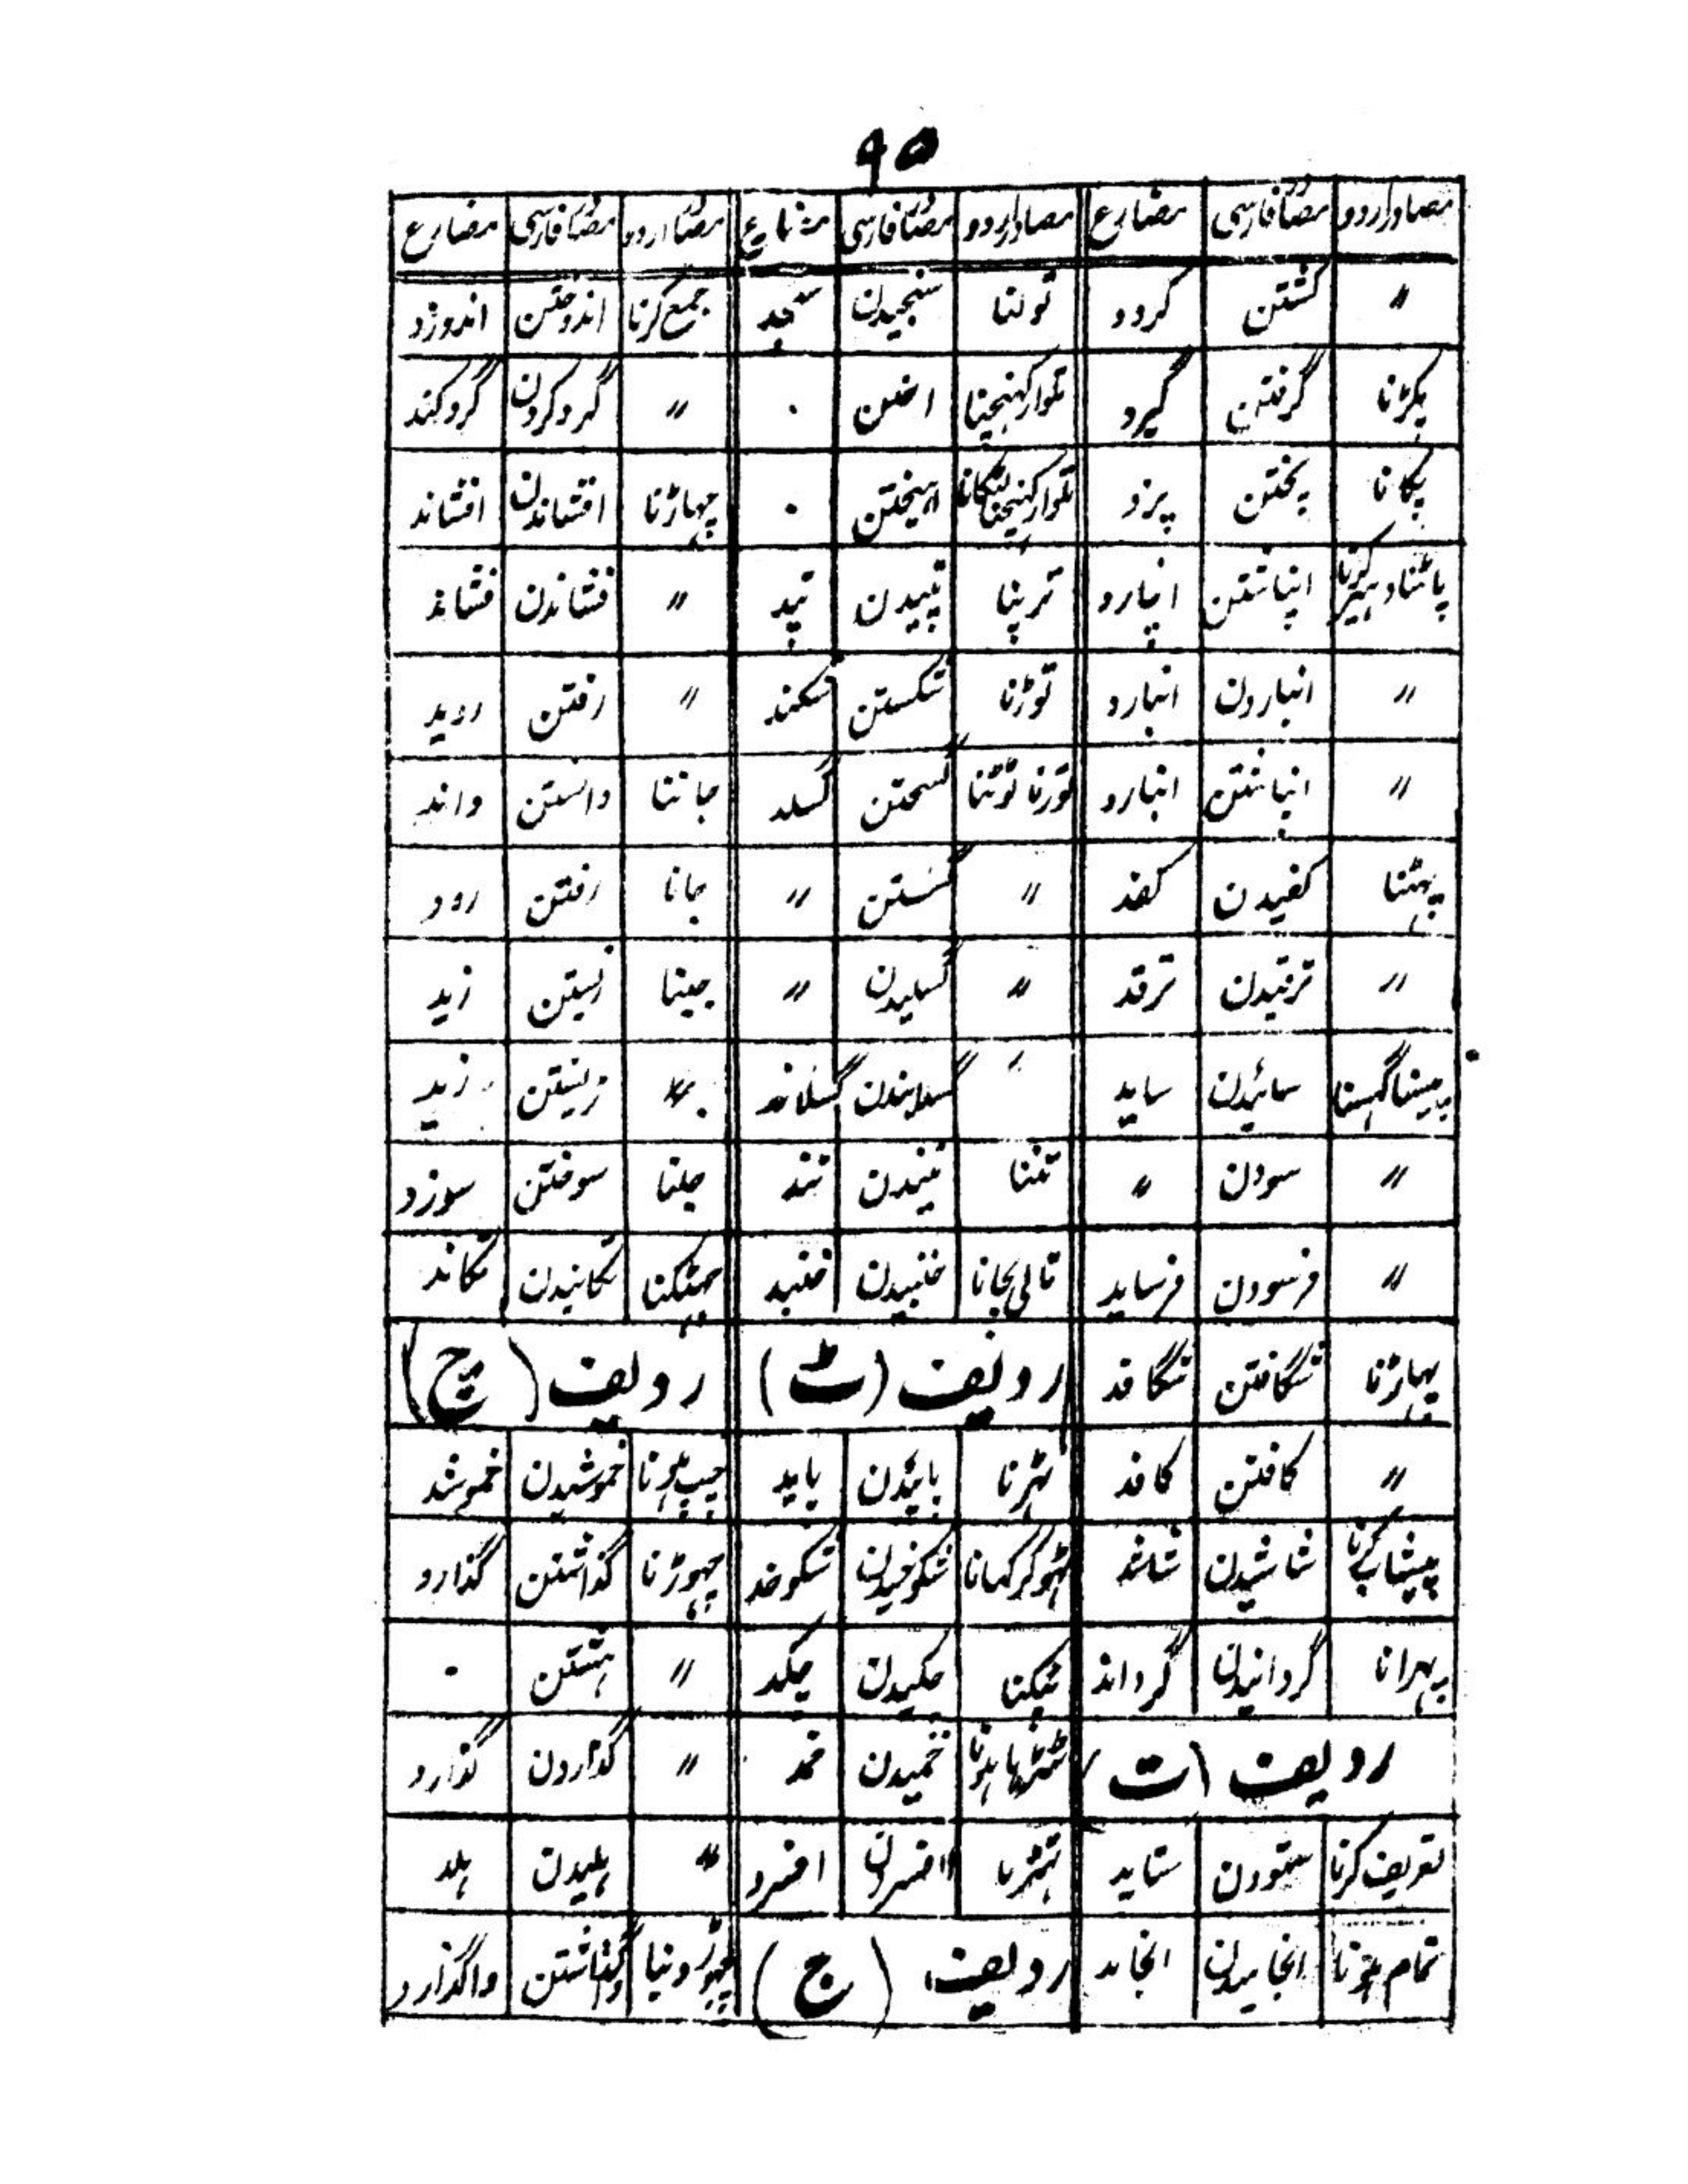 ۹۵
مصادر اردو مصادر فارسی مضارع مصادر اردو مصادر فارسی مضارع مصادر اردو مصادر فارسی مضارع
〃 گشتن گردد تولنا سنجیدن سنجد جمع کرنا اندوختن اندوزد
پکڑنا گرفتن گیرد تلوار کہنچنا اختن ۰ 〃 گرد کردن گرد کند
پکانا پختن پزد تلوار کہینچنا لٹکانا اہیختن ۰ جہاڑنا افشاندن افشاند
پاٹنا و ہیر کرنا انپاشتن انپارد تڑپنا تپیدن تپد 〃 فشاندن فشاند
〃 انباردن انبارد توڑنا شکستن شکند 〃 رفتن روید
〃 انباشتن انبارد توڑنا ٹوٹنا گسختن گسلد جاننا دانستن داند
پہٹنا کفیدن کفد 〃 گستن 〃 جانا رفتن رود
〃 ترقیدن ترقد 〃 گسلیدن 〃 جینا زیستن زید
پیسنا گہسنا سائیدن ساید 〃 گسلانیدن گسلاند 〃 زینتن زید
〃 سودن 〃 تننا تنیدن تند جلنا سوختن سوزد
〃 فرسودن فرساید تالی بجانا خنبیدن خنبد جہٹکنا تکانیدن تکاند
پہاڑنا شگافتن شگافد ردیف (ٹ) ردیف (چ)
〃 کافتن کافد ٹہرنا پائیدن پاید چپ ہونا خموشیدن خموشد
پیشاب کرنا شاشیدن شاشد ٹہوکر کہانا شکوخیدن شکوخد چہوڑنا گذاشتن گذارد
پہرانا گردانیدن گرداند ٹپکنا چکیدن چکد 〃 ہشتن ۰
ردیف (ت) ٹیڑہا ہونا خمیدن خمد 〃 گذاردن گذارد
تعریف کرنا ستودن ستاید ٹہٹرنا افسردن افسرد 〃 ہلیدن ہلد
تمام ہونا انجامیدن انجامد ردیف (ج) چہوڑ دینا واگذاشتن واگذارد